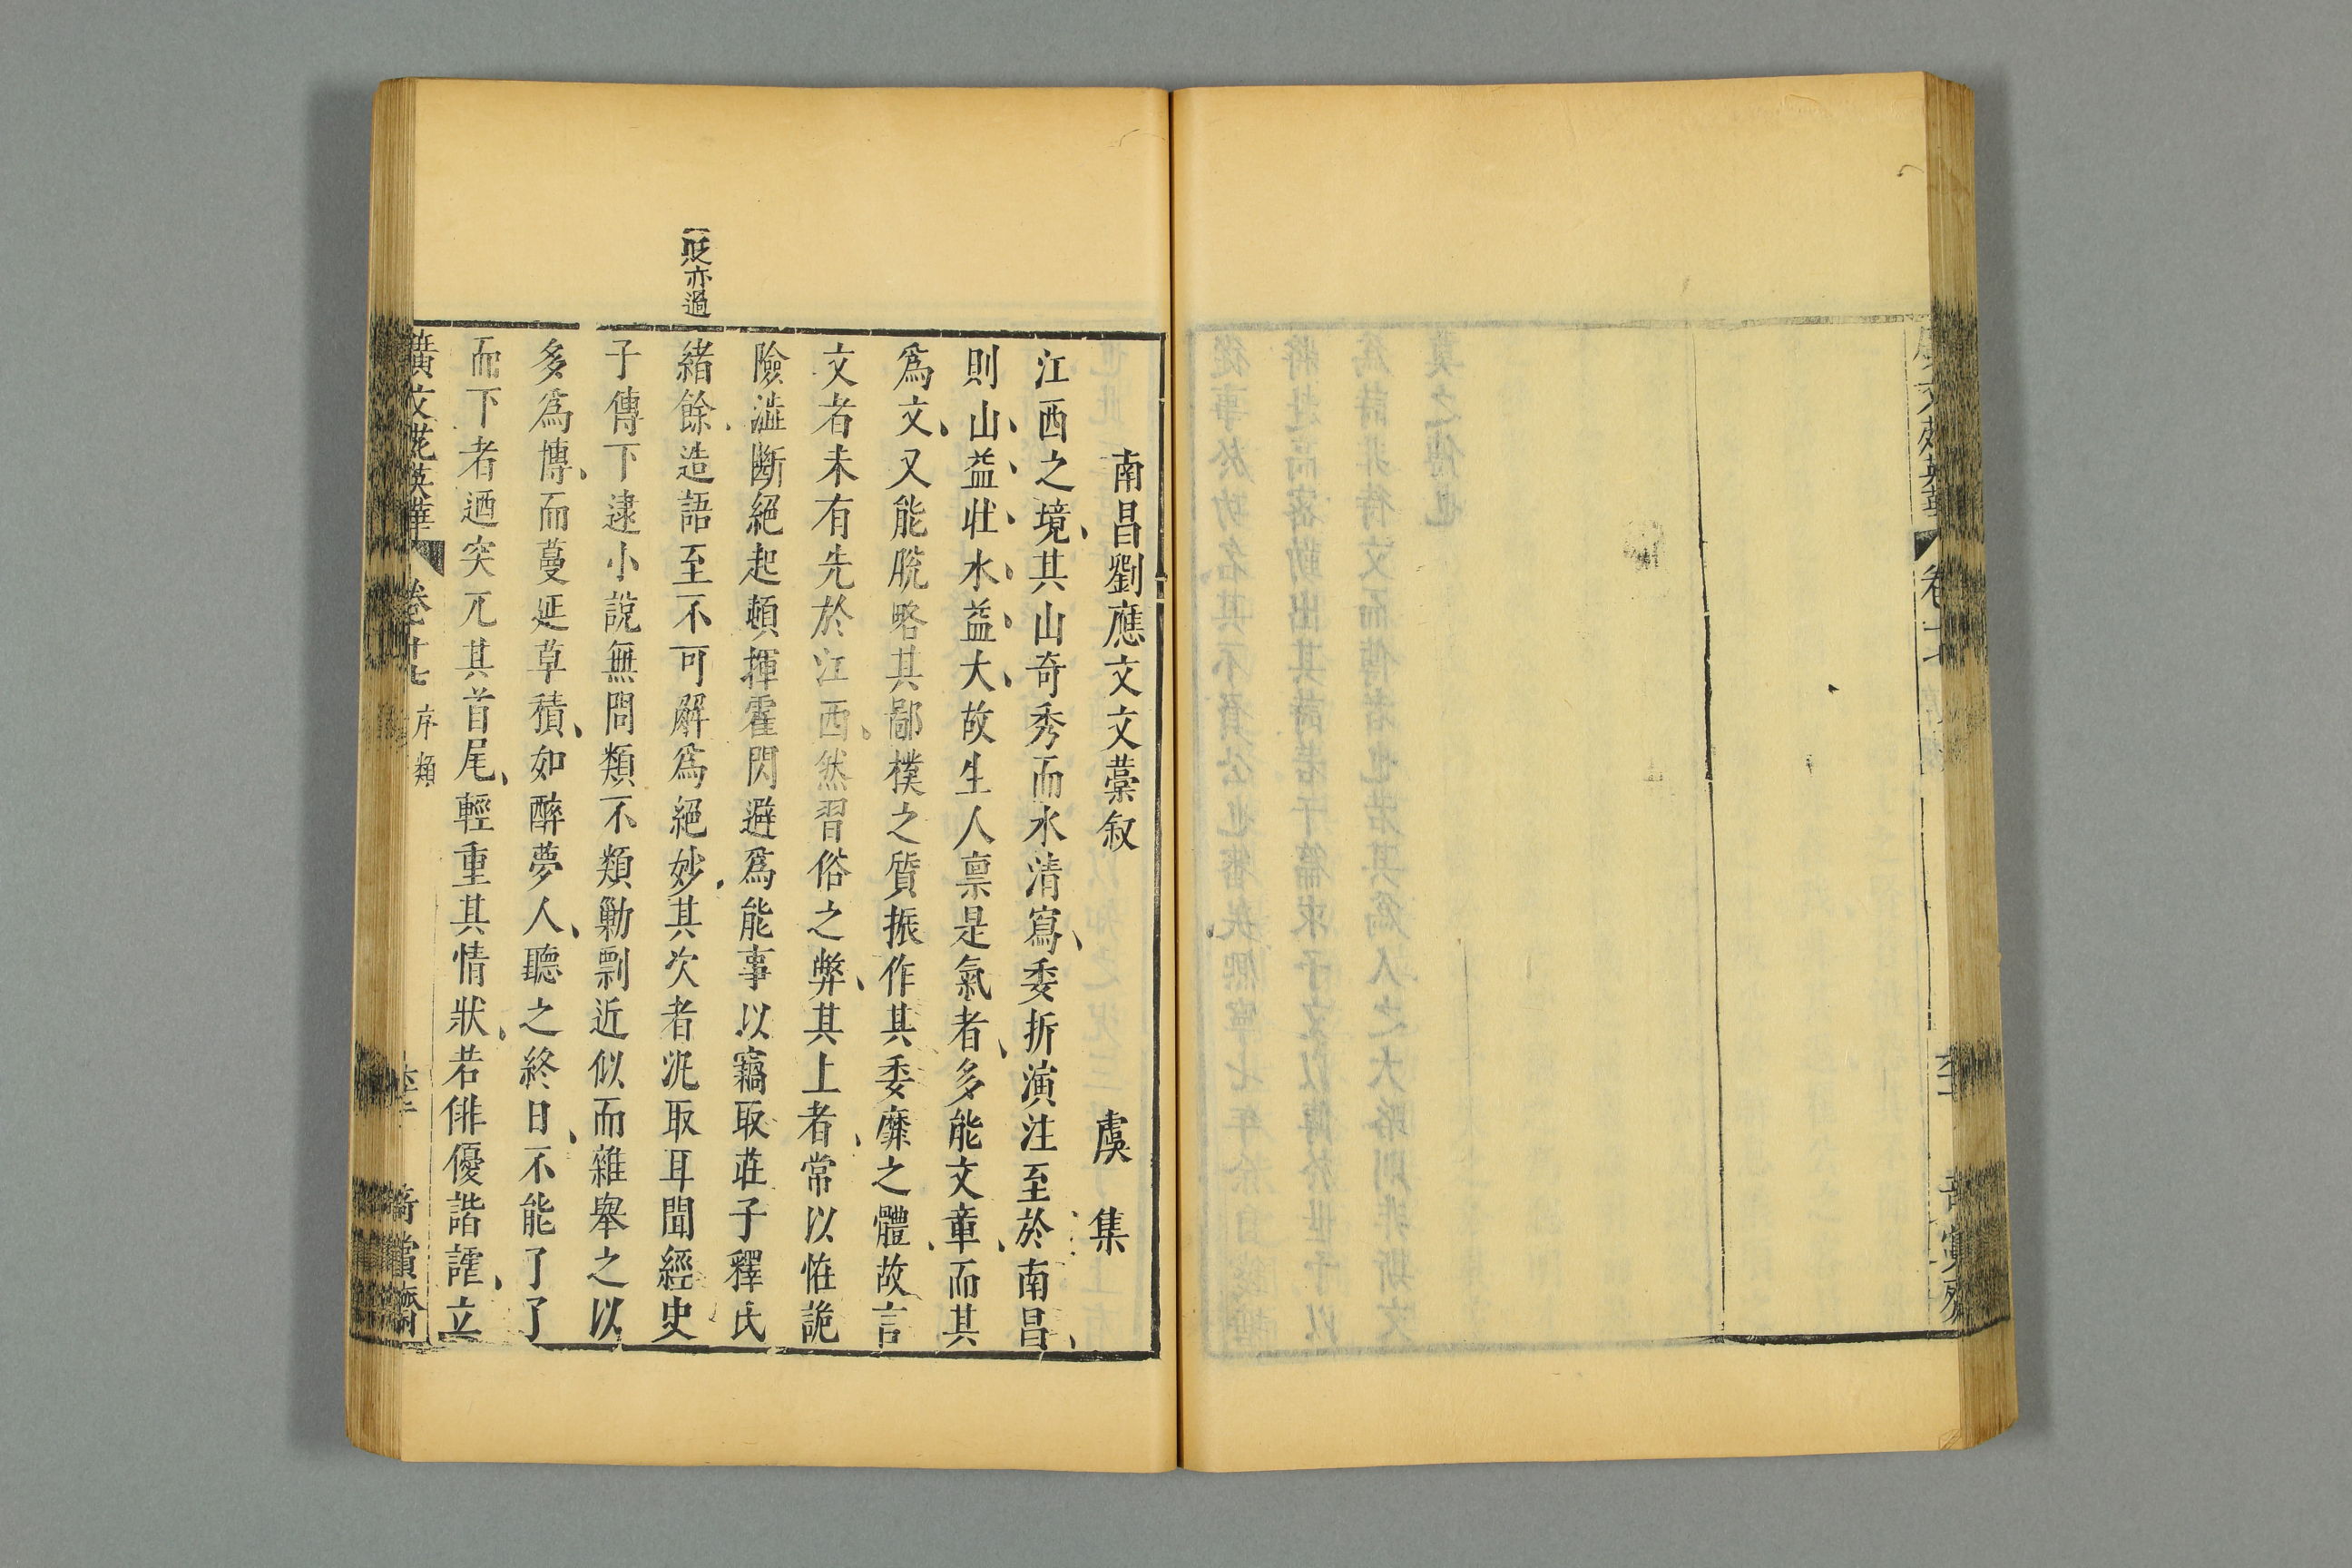 南昌劉應文文藁叙
虞集
江西之境其山奇秀而水清寫委折演注至於南昌
則山益壯水益大故生人禀是氣者多能文章而其
爲文又能脫略其鄙樸之質振作其委靡之體故言
文者未有先於江西然習俗之弊其上者常以恠詭
險澁斷絕起頓揮霍閃避爲能事以竊取莊子釋氏
緒餘造語至不可解爲絕妙其次者汎取耳聞經史
子傳下逮小說無問類不類勦剽近似而雜舉之以
多爲博而蔓延草積如醉夢人聽之終日不能了了
而下者迺突兀其首尾輕重其情狀若俳優諧謔立
貶亦過
廣文苑英華
卷十七
序類